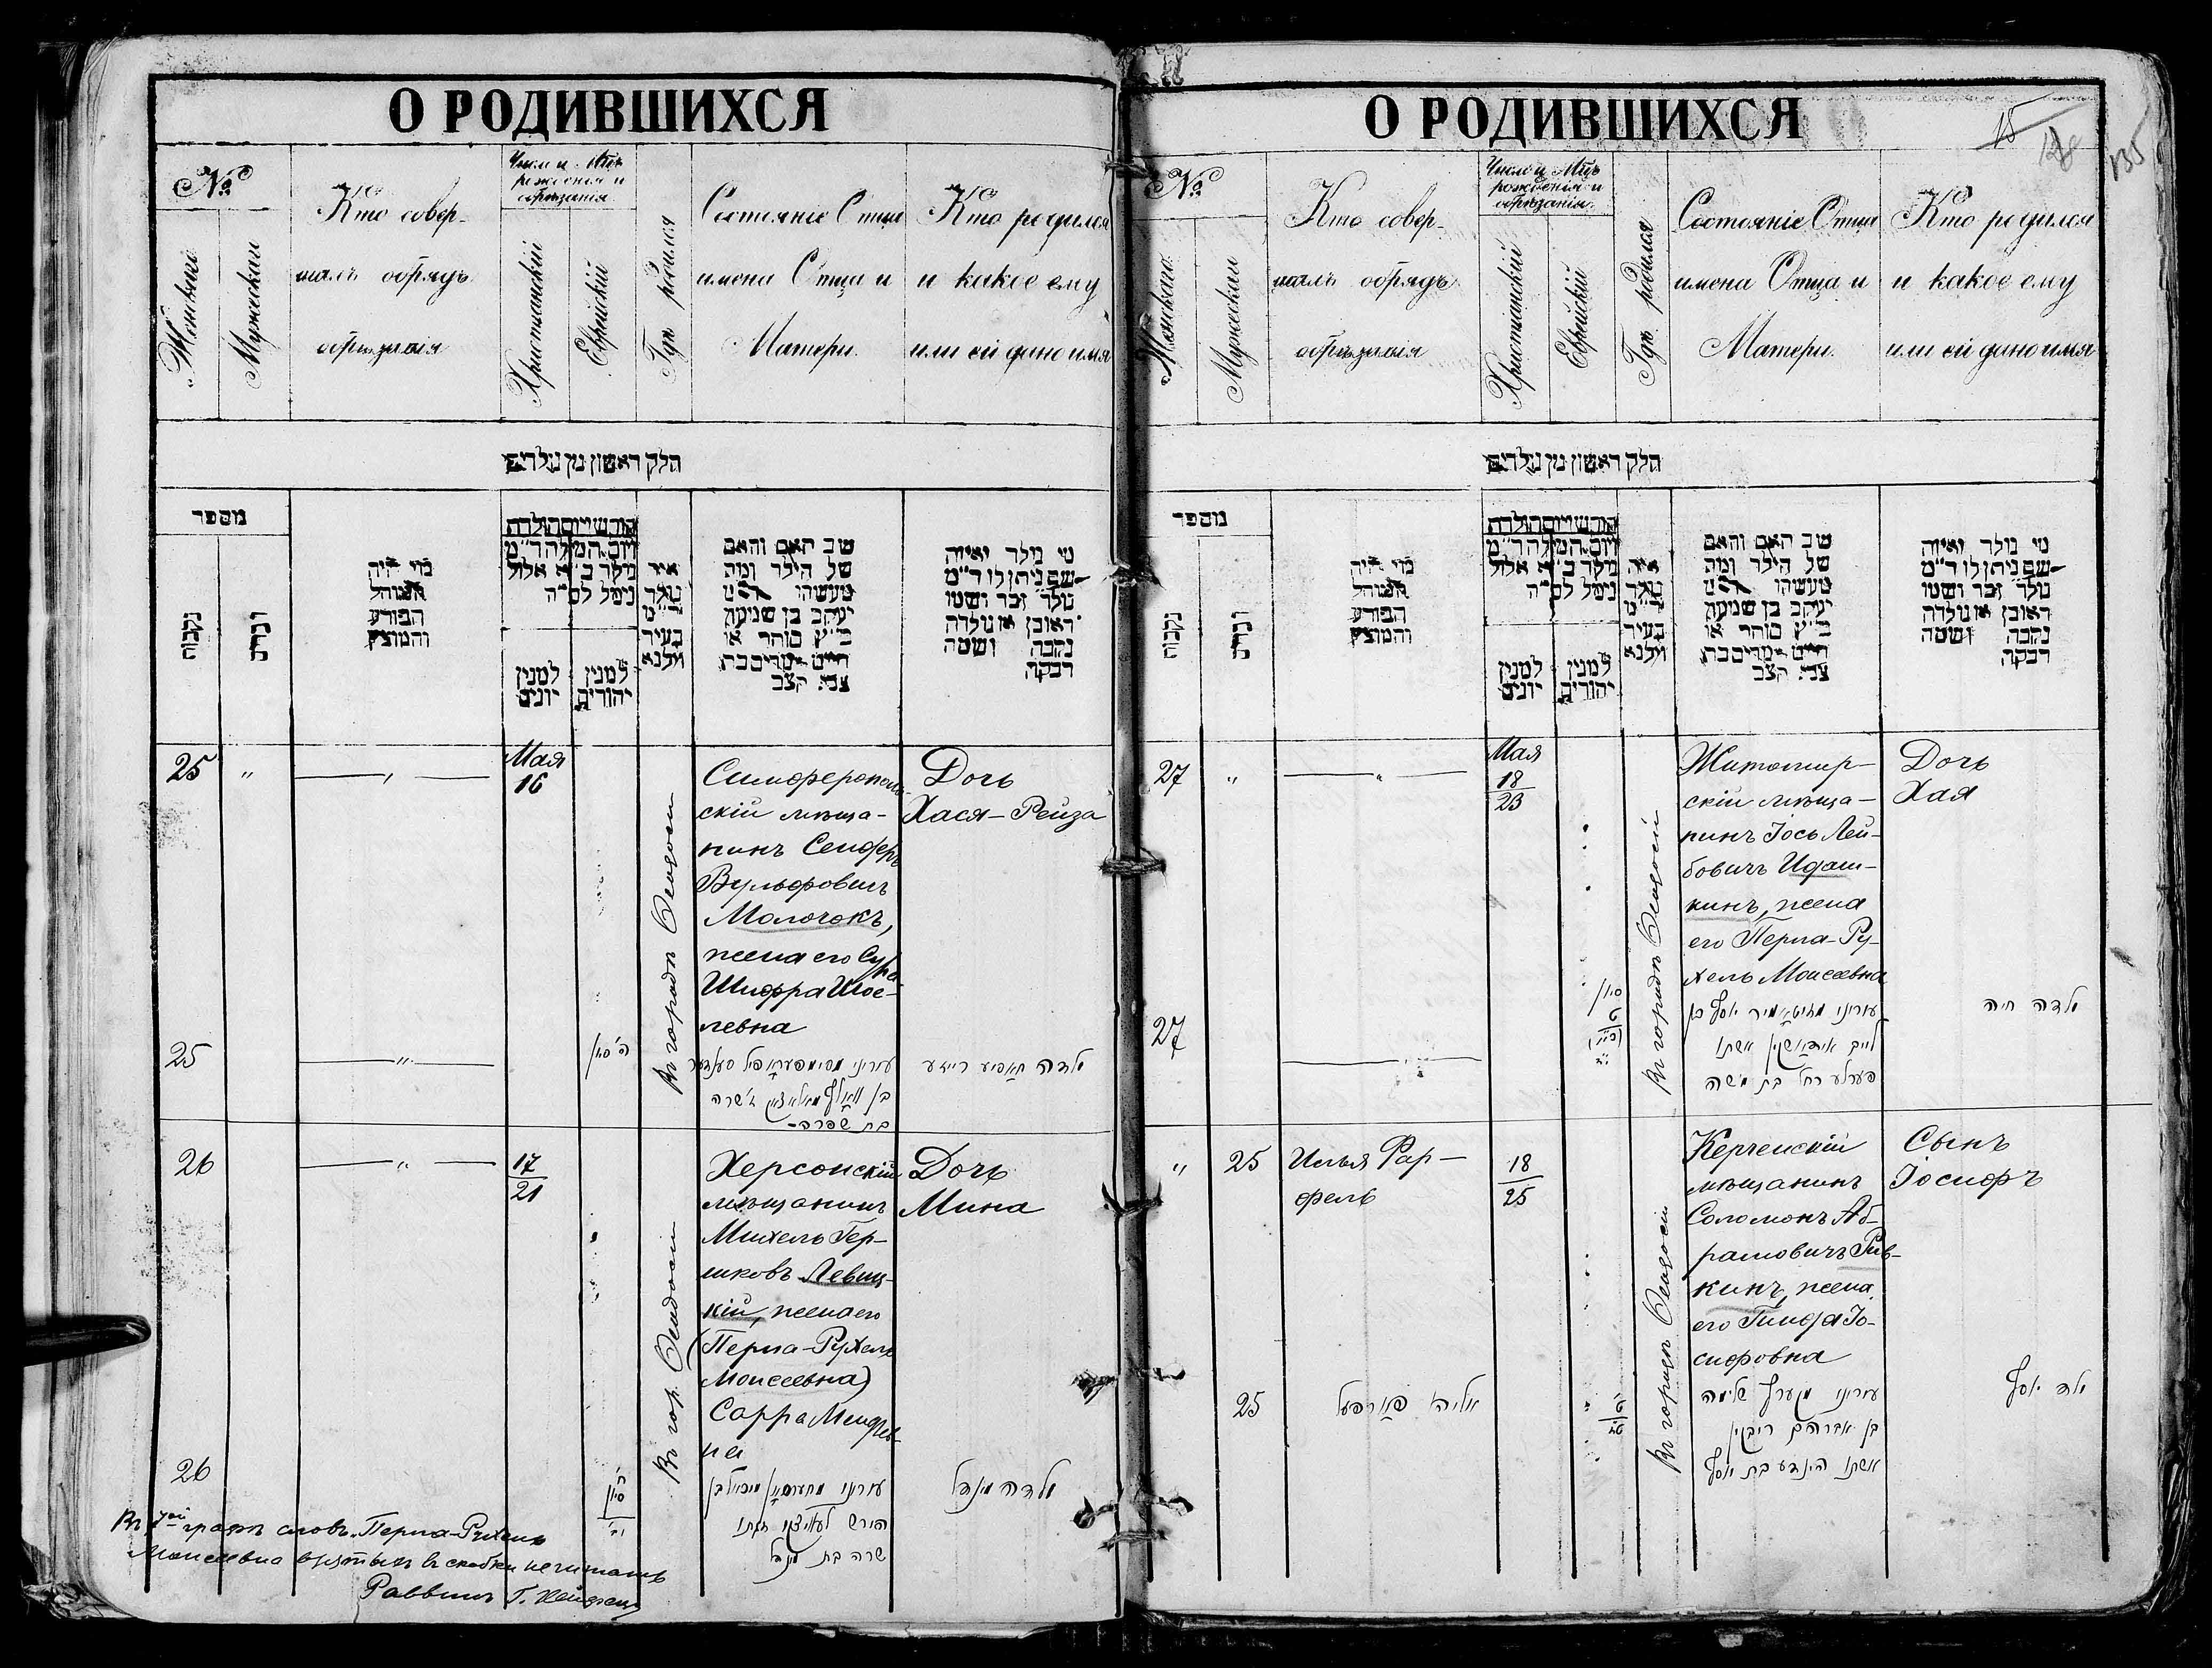 О РОДИВШИХСЯ
№
Женскаго
Мужескаго
Кто совер-
шалъ обрядъ
обрѣзанія
Число и Мѣц.
рожденія и
обрѣзанія
Христіанскій
Еврейскій
Гдѣ родился
Состояніе Отца
имена Отца и
Матери.
Кто родился
и какое ему
или ей дано имя
חלק ראשון מן נולדים
מספר
נקבות
זכרים
מי היה
המוהל
הפורע
והמוצץ
חודש ויום הולדת
ויום המילה ר״מ
נולד ב״א אלול
נימול לס״ה
למנין
יונים
למנין
יהודים
איה
נולד
ר״מ
בעיר
ווילנא
שם האב והאם
של הילד ומה
מעשהו
יעקב בן שמעון
כ״ץ סוחר או
חייט מרים בת
צבי קצב
מי נולד ואיזה
שם ניתן לו ר״מ
נולד זכר ושמו
ראובן או נולדה
נקבה ושמה
רבקה
25 " — " —
Мая
16
Въ городѣ Ѳеодосіи
Симферополь-
скій мѣща-
нинъ Сендеръ
Вульфовичъ
Молочокъ,
жена его Сура
Шифра Шое-
левна
Дочь
Хася-Рейза
25 — " —
ה׳ סיון
26 — " —
17
21
Въ гор. Ѳеодосіи
Херсонскій
мѣщанинъ
Михель Гер-
шковъ Левиц-
кій, жена его
(Перла-Рухель
Моисеевна)
Сарра Менделев-
на
Дочь
Мина
26
סיון
שרה בת מענדל
Въ 7ой графѣ словъ Перла-Рухель
Моисеевна взятыхъ въ скобки не читать
Раввинъ Г.
О РОДИВШИХСЯ
15
135
№
Женскаго
Мужескаго
Кто совер-
шалъ обрядъ
обрѣзанія
Число и Мѣц.
рожденія и
обрѣзанія
Христіанскій
Еврейскій
Гдѣ родился
Состояніе Отца
имена Отца и
Матери.
Кто родился
и какое ему
или ей дано имя
חלק ראשון מן נולדים
מספר
נקבות
זכרים
מי היה
המוהל
הפורע
והמוצץ
חודש ויום הולדת
ויום המילה ר״מ
נולד ב״א אלול
נימול לס״ה
למנין
יונים
למנין
יהודים
איה
נולד
ר״מ
בעיר
ווילנא
שם האב והאם
של הילד ומה
מעשהו
יעקב בן שמעון
כ״ץ סוחר או
חייט מרים בת
צבי קצב
מי נולד ואיזה
שם ניתן לו ר״מ
נולד זכר ושמו
ראובן או נולדה
נקבה ושמה
רבקה
27 " — " —
Мая
18
23
Въ городѣ Ѳеодосіи
Житомир-
скій мѣща-
нинъ Іось Лей-
бовичъ Идаш-
кинъ, жена
его Перла-Ру-
хель Моисеевна
Дочь
Хая
27 — " —
סיון
ילדה חיה
אשתו
פערלע רחל בת משה
" 25
Илья Фар-
фель
18
25
Въ городѣ Ѳеодосіи
Керченскій
мѣщанинъ
Соломонъ Аб-
рамовичъ Рив-
кинъ, жена
его Гинда Іо-
сифовна
Сынъ
Іосифъ
25
אליהו פארפעל
שלמה
בן אברהם ריבקין
אשתו הינדע בת יוסף
ילד יוסף